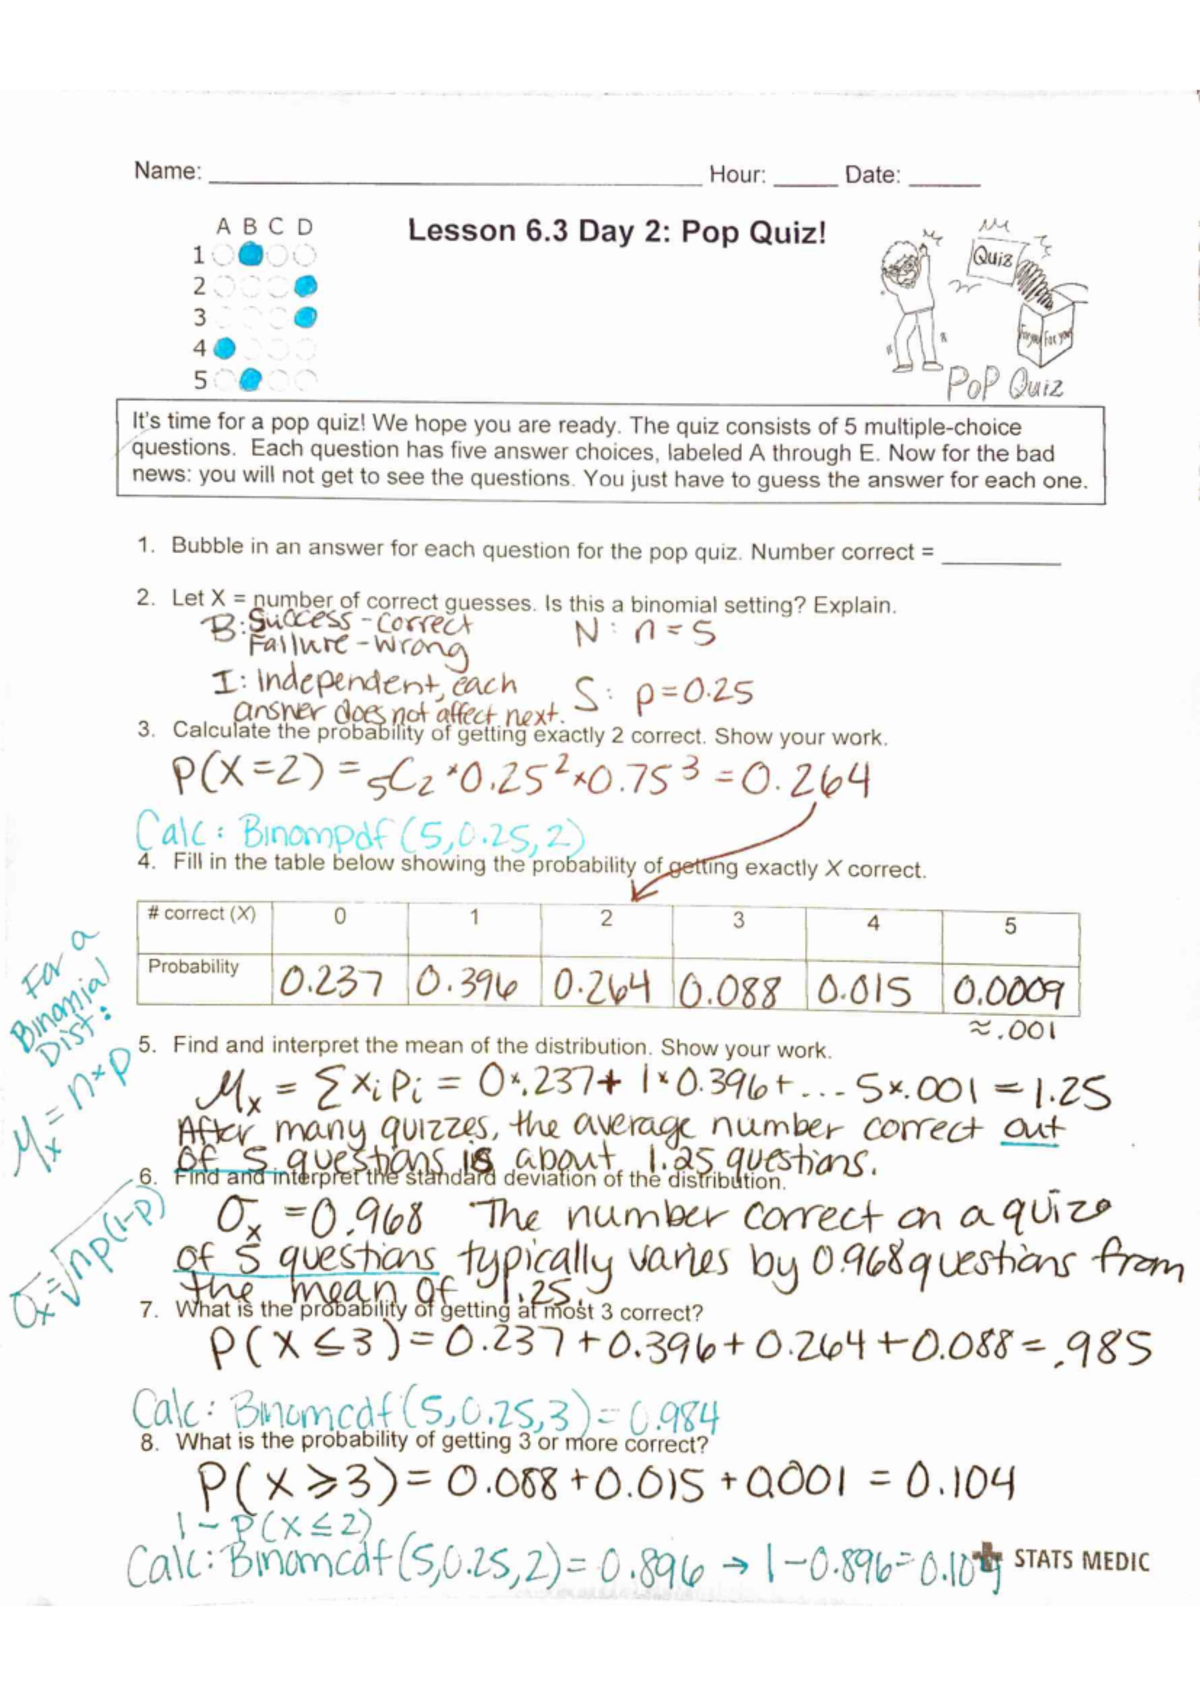 Name: ____ Hour: ____ Date: ____
A B C D
Lesson 6.3 Day 2: Pop Quiz!
1
2
3
4
5
Quiz
For you For you
PoP Quiz
It's time for a pop quiz! We hope you are ready. The quiz consists of 5 multiple-choice
questions. Each question has five answer choices, labeled A through E. Now for the bad
news: you will not get to see the questions. You just have to guess the answer for each one.
1. Bubble in an answer for each question for the pop quiz. Number correct = ____
2. Let X = number of correct guesses. Is this a binomial setting? Explain.
B: Success - Correct
Failure - Wrong
N: n = 5
I: Independent, each
answer does not affect next.
S: p = 0.25
3. Calculate the probability of getting exactly 2 correct. Show your work.
P(X=2) = ₅C₂ * 0.25² * 0.75³ = 0.264
Calc: Binompdf (5,0.25,2)
4. Fill in the table below showing the probability of getting exactly X correct.
# correct (X) 0 1 2 3 4 5
Probability 0.237 0.396 0.264 0.088 0.015 0.0009
≈.001
For a
Binomial
Dist:
Mx = n*p
5. Find and interpret the mean of the distribution. Show your work.
Mx = Σxipi = 0*.237 + 1*0.396 + ... 5*.001 = 1.25
After many quizzes, the average number correct out
of 5 questions is about 1.25 questions.
6. Find and interpret the standard deviation of the distribution.
σx = √np(1-p)
σx = 0.968 The number correct on a quiz
of 5 questions typically varies by 0.968 questions from
the mean of 1.25.
7. What is the probability of getting at most 3 correct?
P(X ≤ 3) = 0.237 + 0.396 + 0.264 + 0.088 = .985
Calc: Binomcdf (5,0.25,3) = 0.984
8. What is the probability of getting 3 or more correct?
P(X ≥ 3) = 0.088 + 0.015 + 0.001 = 0.104
1 - P(X ≤ 2)
Calc: Binomcdf (5,0.25,2) = 0.896 → 1 - 0.896 = 0.104
STATS MEDIC